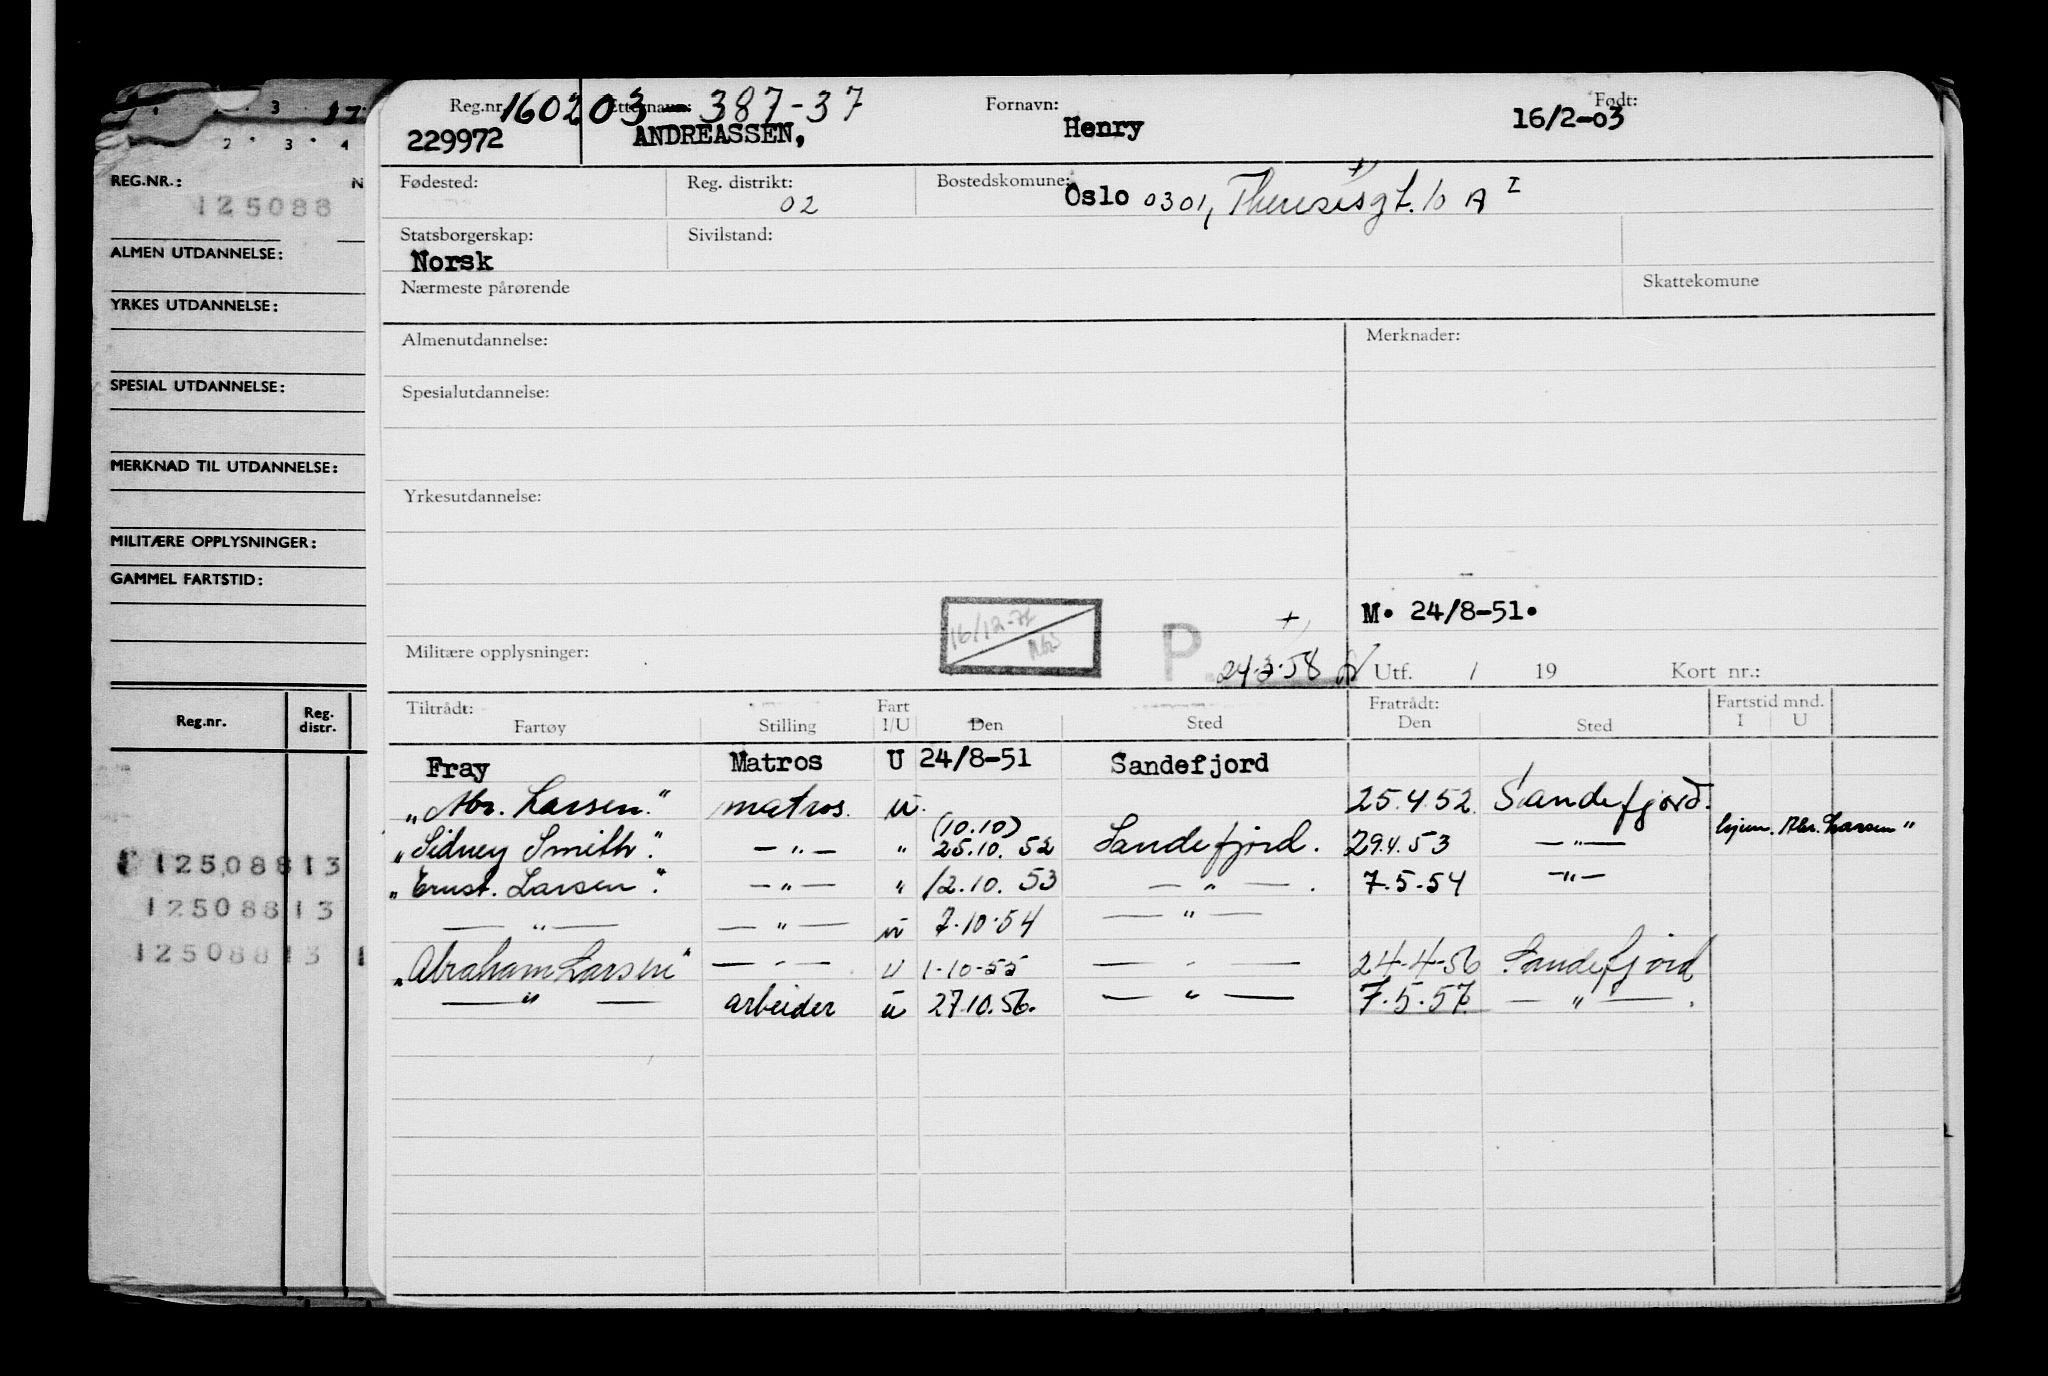 3 17
2 · 3 · 4
REG.NR.: N
125088
ALMEN UTDANNELSE:
YRKES UTDANNELSE:
SPESIAL UTDANNELSE:
MERKNAD TIL UTDANNELSE:
MILITÆRE OPPLYSNINGER:
GAMMEL FARTSTID:
Reg.nr. Reg. distr.
125088 13
125088 13
125088 13 1
Reg.nr. 160203 Etternavn: 387-37 Fornavn: Født:
229972 ANDREASSEN, Henry 16/2-03
Fødested: Reg. distrikt: 02 Bostedskommune: Oslo 0301, Theresesgt. 10 A I
Statsborgerskap: Sivilstand:
Norsk
Nærmeste pårørende Skattekomune
Almenutdannelse: Merknader:
Spesialutdannelse:
Yrkesutdannelse:
16/12-71
M. 24/8-51.
Militære opplysninger: P 24-3-58 Utf. / 19 Kort nr.:
Tiltrådt: Fart Fratrådt: Fartstid mnd.
Fartøy Stilling I/U Den Sted Den Sted I U
Fray Matros U 24/8-51 Sandefjord
"Abr. Larsen." matros. u. 25.4.52. Sandefjord.
(10.10) hjem. Abr. Larsen"
"Sidney Smith". — " — " 25.10. 52 Sandefjord. 29.4.53 — " —
"Ernst. Larsen". — " — " 12.10. 53 — " — . 7.5.54 — " —
— " — — " — u 7.10.54 — " —
"Abraham Larsen" — " — u 1-10-55 — " — 24-4-56 Sandefjord
— " — arbeider u 27.10.56. — " — 7.5.57. — " — .